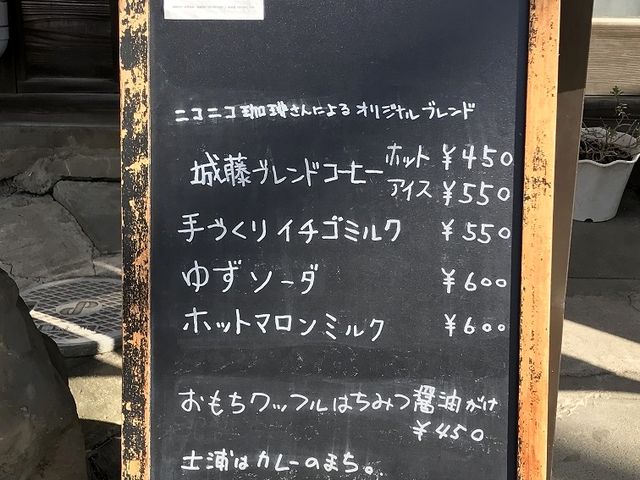 ニコニコ珈琲さんによるオリジナルブレンド
城藤ブレンドコーヒー ホット ¥450
アイス ¥550
手づくりイチゴミルク ¥550
ゆずソーダ ¥600
ホットマロンミルク ¥600
おもちワッフルはちみつ醤油がけ
¥450
土浦はカレーのまち。